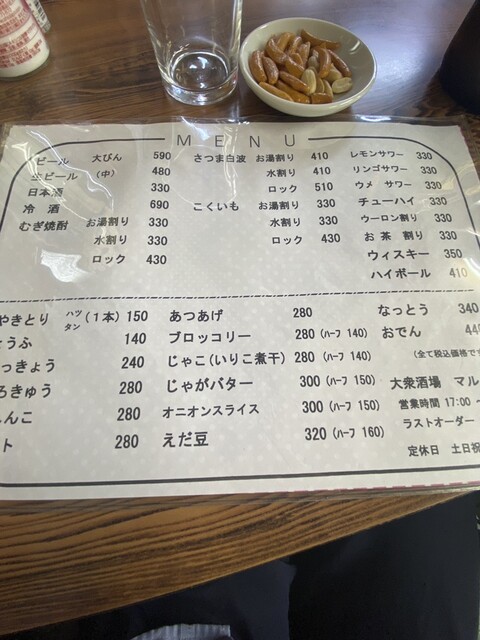 MENU
ビール 大びん 590
生ビール (中) 480
日本酒 330
冷酒 690
むぎ焼酎 お湯割り 330
水割り 330
ロック 430
さつま白波 お湯割り 410
水割り 410
ロック 510
こくいも お湯割り 330
水割り 330
ロック 430
レモンサワー 330
リンゴサワー 330
ウメ サワー 330
チューハイ 330
ウーロン割り 330
お茶 割り 330
ウィスキー 350
ハイボール 410
やきとり ハツ タン (1本) 150
うふ 140
っきょう 240
ろきゅう 280
んこ 280
ト 280
あつあげ 280
ブロッコリー 280 (ハーフ 140)
じゃこ(いりこ煮干) 280 (ハーフ 140)
じゃがバター 300 (ハーフ 150)
オニオンスライス 300 (ハーフ 150)
えだ豆 320 (ハーフ 160)
なっとう 340
おでん 440
(全て税込価格です
大衆酒場 マル
営業時間 17:00 ~
ラストオーダー
定休日 土日祝